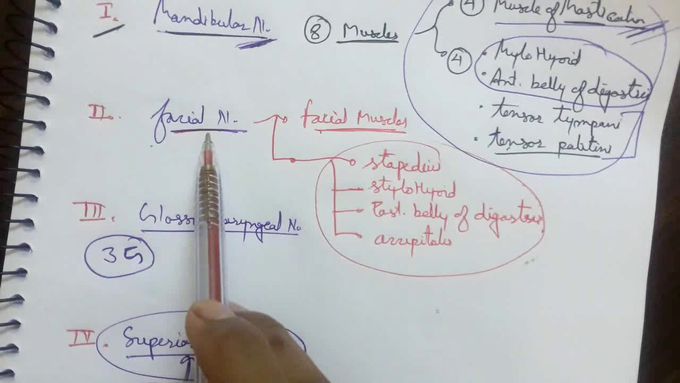 I. Mandibular N. 8 Muscles 4 Muscle of Mastication
4 Mylo Hyoid
• Ant. belly of digastric
• tensor tympani
• tensor palatini
II. facial N. facial Muscles
stapedius
styloHyoid
Post. belly of digastric
III. Glossopharyngeal N.
35
IV. Superio